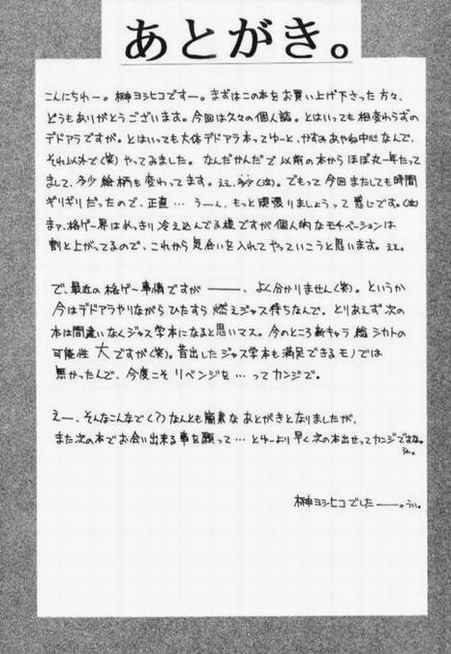 あとがき。
こんにちわー。榊ヨシヒコですー。まずはこの本をお買い上げ下さった方々、
どうもありがとうございます。今回は久々の個人誌。とはいっても相変わらずの
デドアラですが。とはいっても大体デドアラ本ってゆーと、かすみあやね中心なんで、
それ以外で(笑)やってみました。なんだかんだで以前の本からほぼ丸一年たって
まして、多少絵柄も変わってます。ええ、多少(泣)。でもって今回またしても時間
ギリギリだったので、正直…うーん、もっと頑張りましょうって感じです。(泣)
まァ、格ゲー界はめっきり冷え込んでる様ですが個人的なモチベーションは
割と上がってるので、これから気合いを入れてやっていこうと思います。ええ。
で、最近の格ゲー事情ですが―――、よく分かりません(笑)。というか
今はデドアラやりながらひたすら燃えジャス待ちなんで。とりあえず次の
本は間違いなくジャス学本になると思いマス。今のところ新キャラ総シカトの
可能性大ですが(笑)。昔出したジャス学本も満足できるモノでは
無かったんで、今度こそリベンジを…ってカンジで。
えー、そんなこんなで(?)なんとも簡素なあとがきとなりましたが、
また次の本でお会い出来る事を願って…とゆーより早く次の本出せってカンジですね。
榊ヨシヒコでした―――。